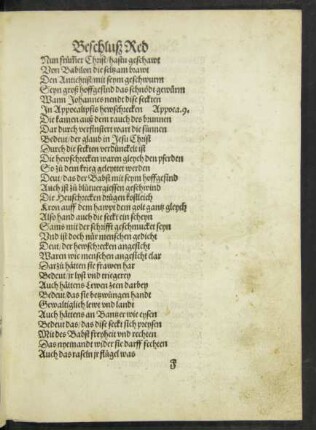 Beschluß Red
Nun frümer Christ/ hastu geschawt
Von Babilon die seltzam brawt
Den Antichrist/ mit seym geschwurm
Seyn groß hoffgesind das schnödt gewürm
Wann Johannes nendt dise seckten
In Appocalipsis hewschrecken Appoca.9.
Die kamen auß dem rauch des brunnen
Dar durch verfinstert wart die sunnen
Bedeut/ der glaub in Jesu Christ
Durch die seckten verdunckelt ist
Die hewschrecken waren gleych den pferden
So zů dem krieg bereyttet werden
Deut/ das der Babst mit seym hoffgesind
Auch ist zů blůtuergiessen geschwind
Die Heuschrecken drůgen köstleich
Kron auff dem hawpt dem golt gantz gleych
Also hand auch die seckt ein scheyn
Sams mit der schrifft geschmucket seyn
Vnd ist doch nür menschen gedicht
Deut/ der hewschrecken angesicht
Waren wie menschen angesicht clar
Darzů hätten sie frawen har
Bedeut/ jr lyst vnd triegerey
Auch hättens Lewen zeen darbey
Bedeut das sie bezwüngen handt
Gewaltigklich lewt vnd landt
Auch hättens an Bantzer wie eysen
Bedeut das/ das dise seckt sich preysen
Mit des Babst freyheit vnd rechten
Das nyemandt wider sie darff fechten
Auch das raseln jr flügel was
F